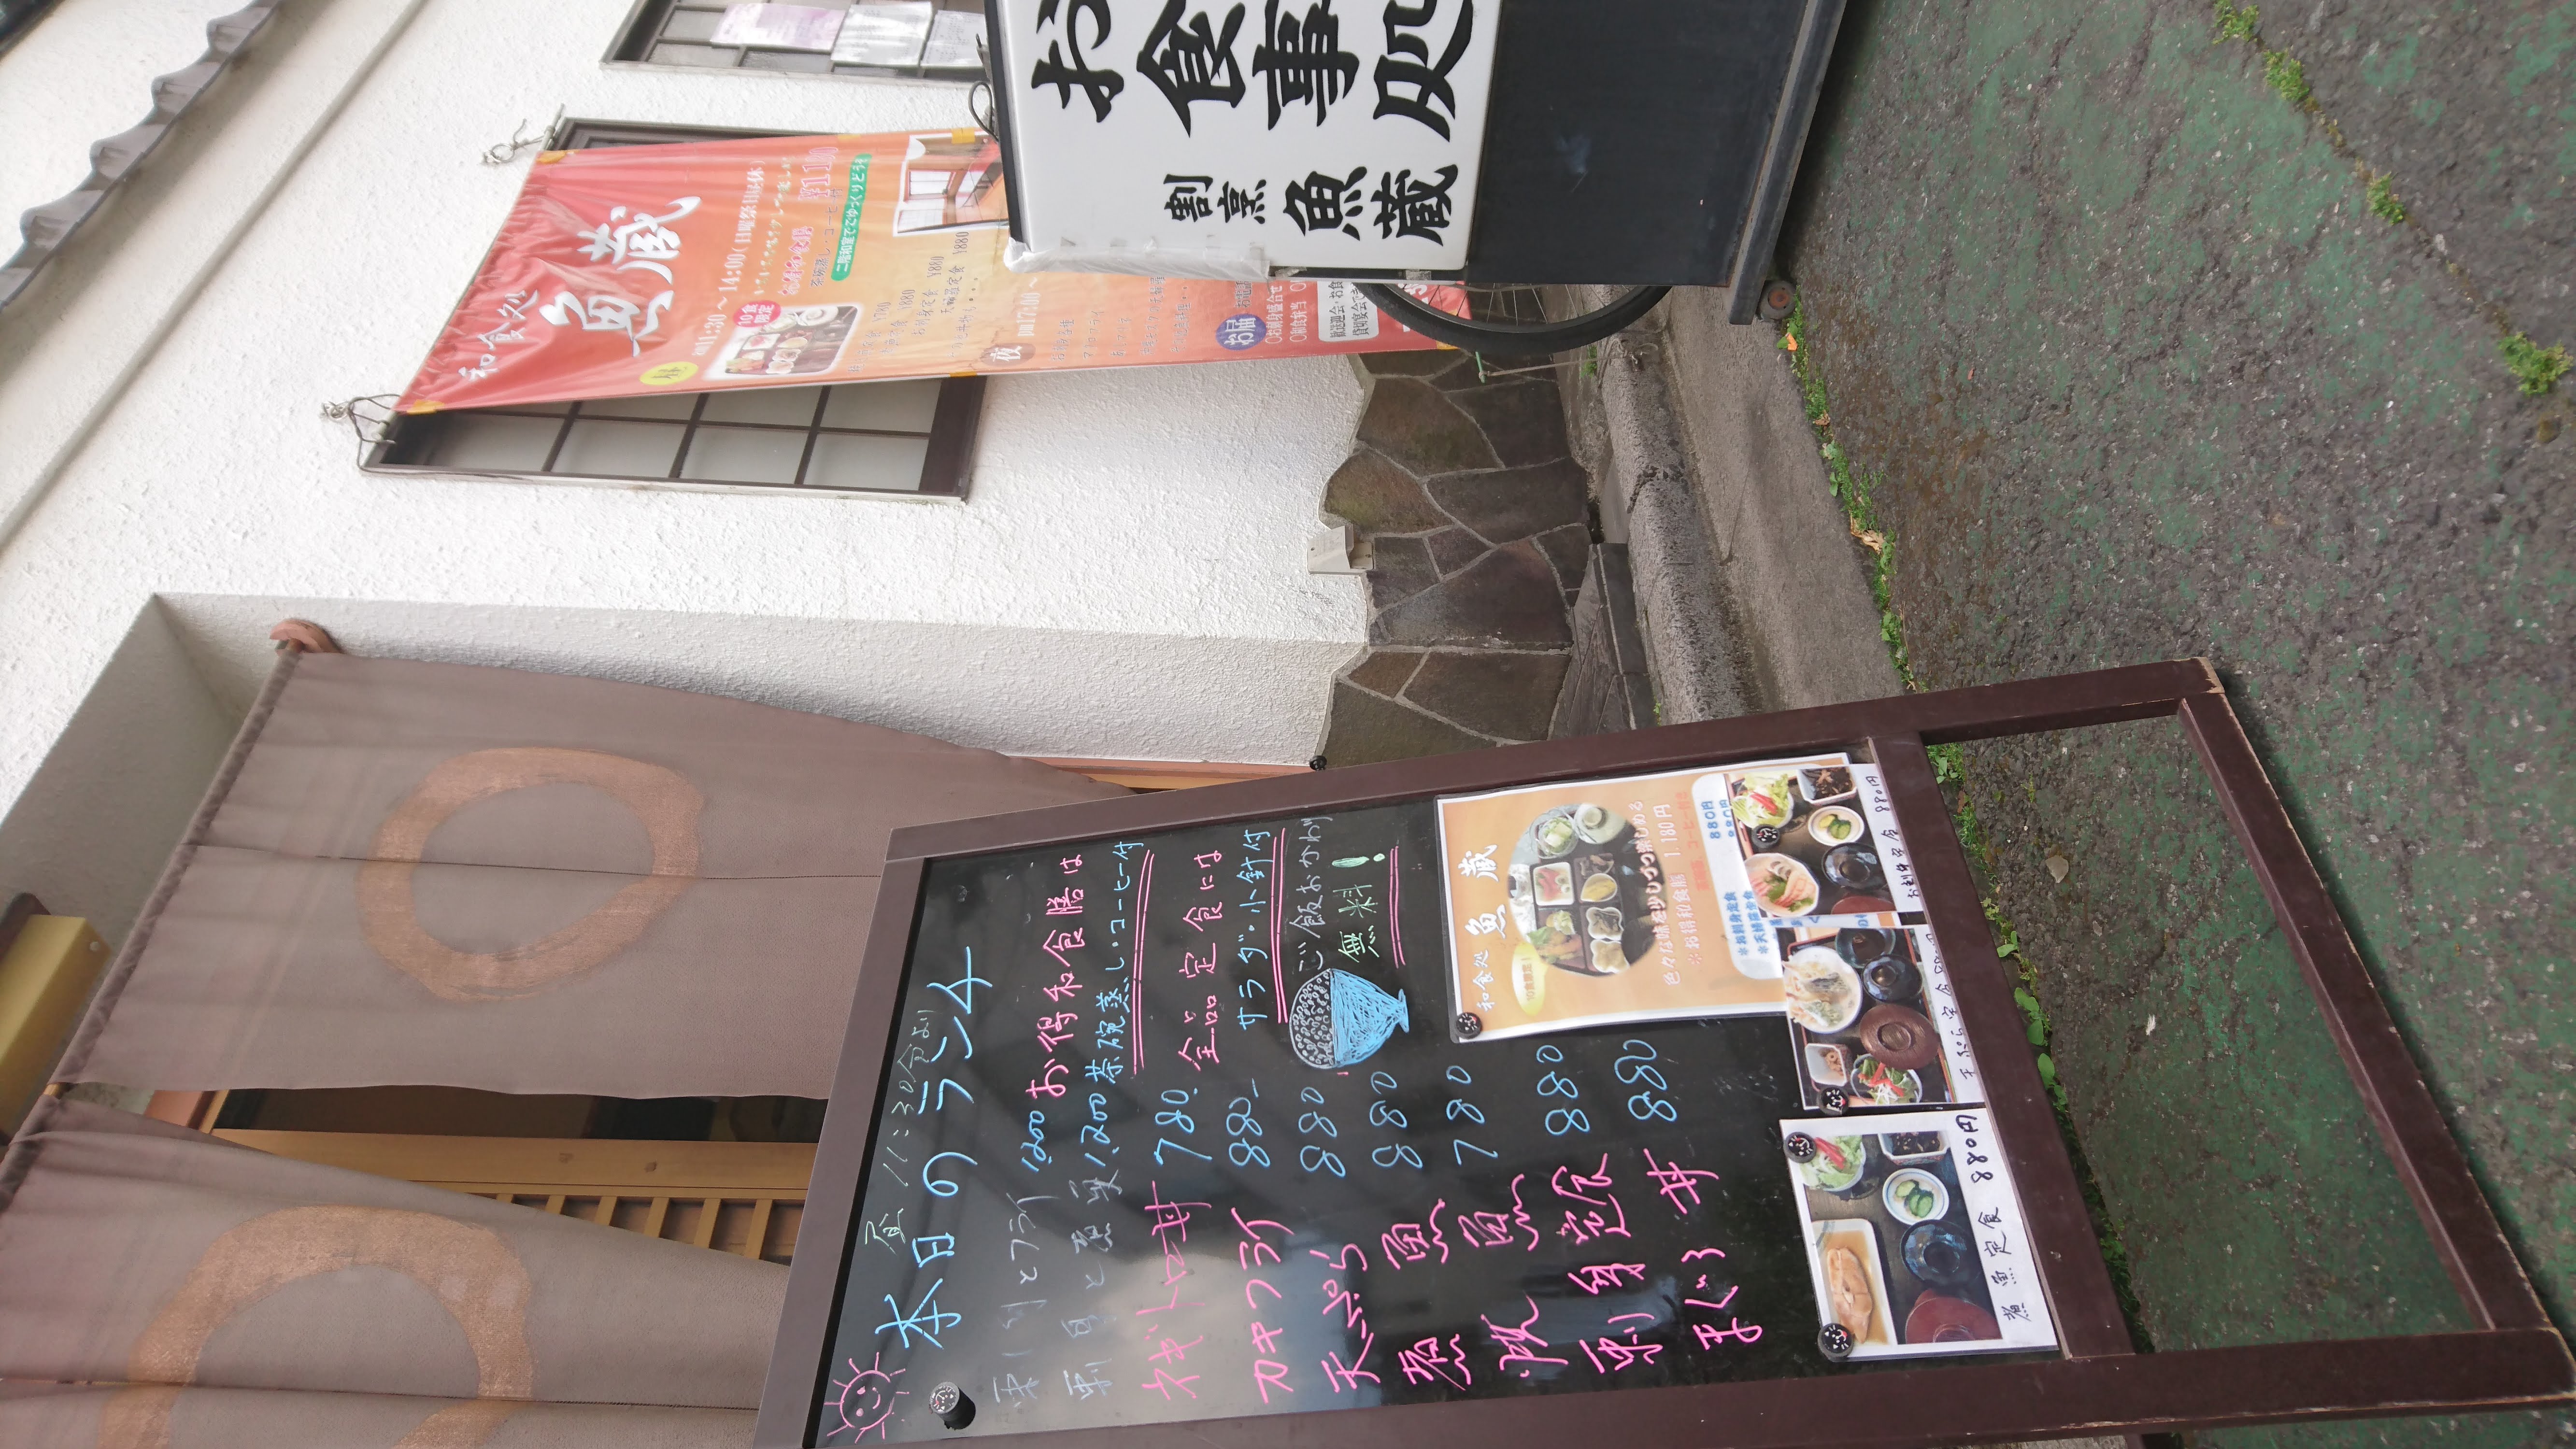 昼 11:30分より
本日のランチ
刺身とフライ 1,200
刺身と煮魚 1,200
ネギトロ丼 780
カキフライ 880
天ぷら 880
煮魚 880
焼魚 780
刺身定食 880
まぐろ丼 880
お得和食膳は
茶碗蒸し・コーヒー付
全品定食には
サラダ・小針付
ご飯おかわり
無料!
和食処 魚蔵
10食限定!
色々な味を少しづつ楽しめる
※お得和食膳 1,180円
茶碗蒸、コーヒー付き
※お刺身定食 880円
※天婦羅定食 880円
煮魚定食 880円
天ぷら定食
お刺身定食 880円
和食処
魚蔵
昼
am11:30～14:00(日曜祭日昼休)
10食
限定
お得和食膳 ¥1180
茶碗蒸し・コーヒー付
二階和室でごゆっくりどうぞ
¥780
¥880
お刺身定食 ¥880
天婦羅定食 ¥880
夜
pm17:00～
お届
お電話
○お刺身盛合せ
○和食弁当
歓送迎会・お食
貸切宴会でき
お食事処
割烹 魚蔵